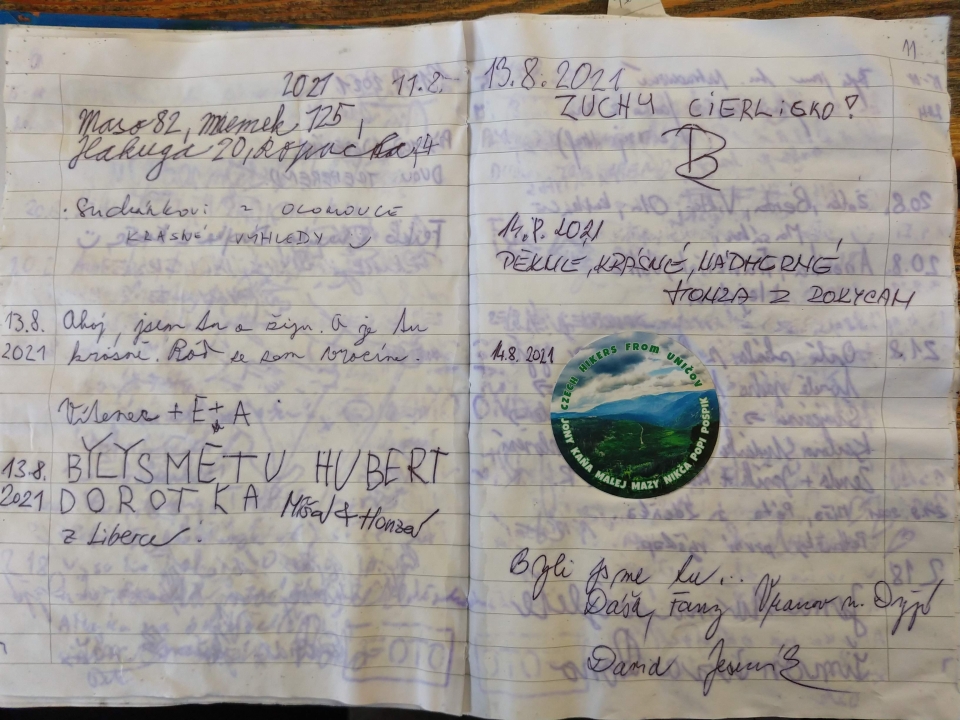 2021 11.8.
Maso 82, mamek 125,
Hakuga 20, Ropucha 74
Suchánkovi z OLOMOUCE
KRÁSNÉ VÝHLEDY
13.8. Ahoj, jsem tu a žiju. A je tu
2021 krásně. Rád se sem vrácím.
+ E + A
13.8. BYLY SME TU HUBERT
2021 DOROTKA Míša & Honza
z Liberce!
11
13.8.2021
ZUCHY CIERLISKO!
B
14.8.2021
PĚKNÉ, KRÁSNÉ, NÁDHERNÉ
HONZA Z ROKYCAN
14.8.2021
CZECH HIKERS FROM UNIČOV
JONY KAŇA MALEJ MAZY NIKČA POPI POŠPIK
Byli jsme tu...
Dáša, Franz Vranov n. Dyjí
David